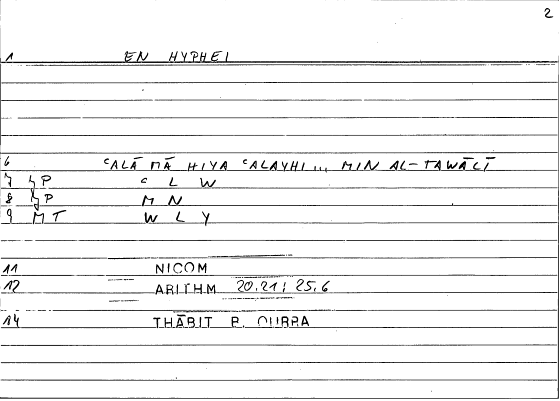 2
1 EN HYPHEI
6 ʿALĀ MĀ HIYA ʿALAYHI ... MIN AL-TAWĀLĪ
7 ʿP ʿ L W
8 P M N
9 MT W L Y
11 NICOM
12 ARITHM 20.21; 25.6
14 THĀBIT B. QURRA